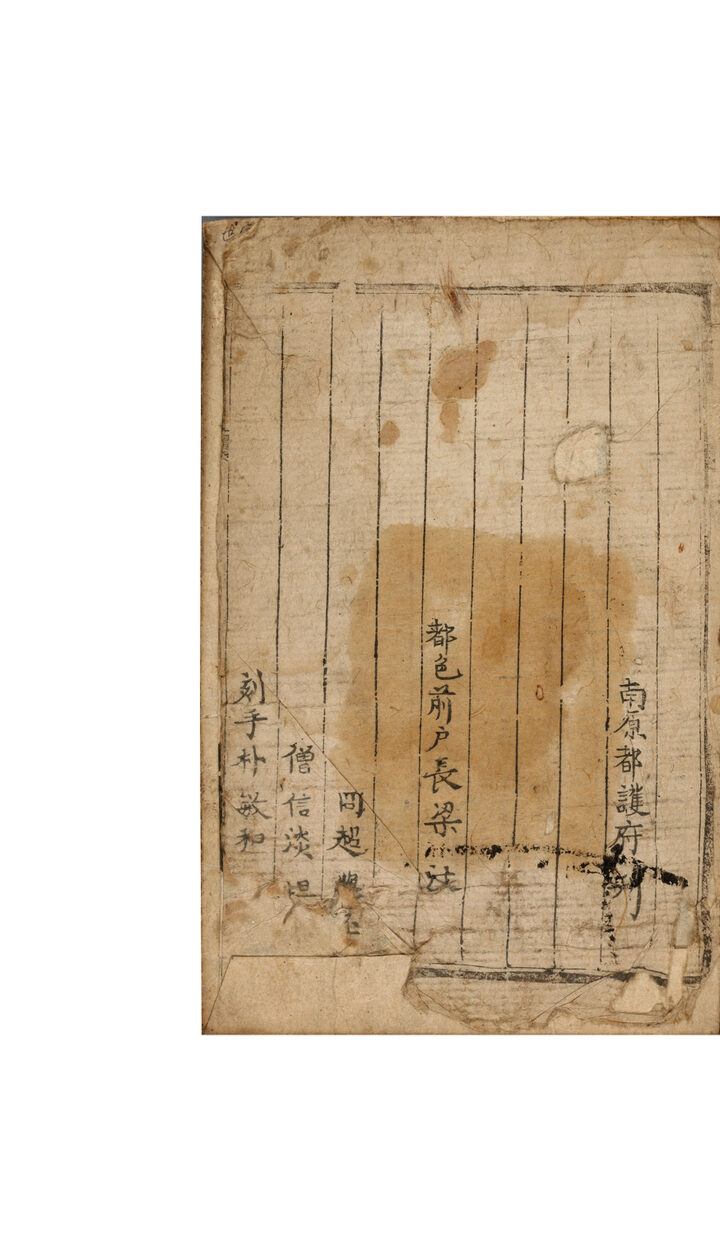 南原都護府刊
都色前戶長梁
冏超
僧信淡
刻手朴敏和